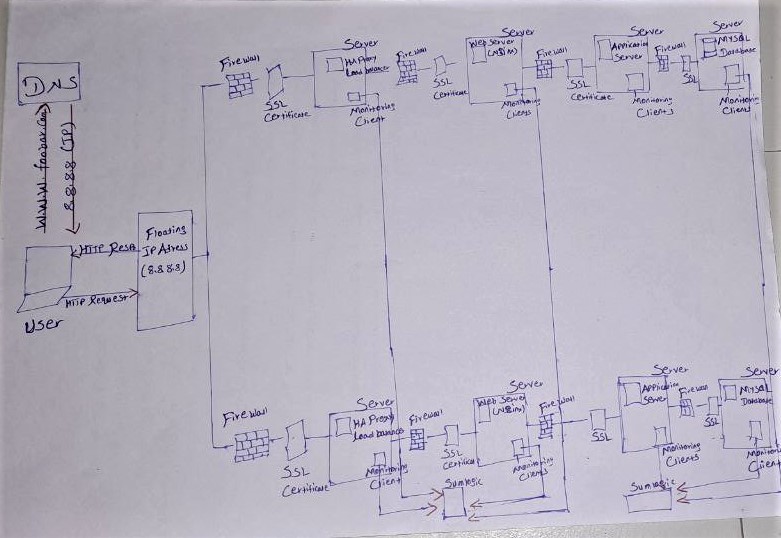 DNS
www.foobar.com
8.8.8.8 (IP)
HTTP Request
User
Floating
IP Adress
(8.8.8.8)
Firewall
SSL
Certificate
Server
HA Proxy
Load balancer
Monitoring
Client
Firewall
SSL
Certificate
Server
Web Server
(NGinx)
Monitoring
Clients
Firewall
SSL
Certificate
Server
Application
Server
Monitoring
Clients
Firewall
SSL
Server
MYSQL
Database
Monitoring
Client
Firewall
SSL
Certificate
Server
HA Proxy
Load balance
Monitoring
Client
Firewall
SSL
Certificate
Server
Web Server
(NGinx)
Monitoring
Clients
Firewall
SSL
Server
Application
Server
Monitoring
Clients
Firewall
SSL
Server
MYSQL
Database
Monitorin
Client
Sumlogic
Sumlogic